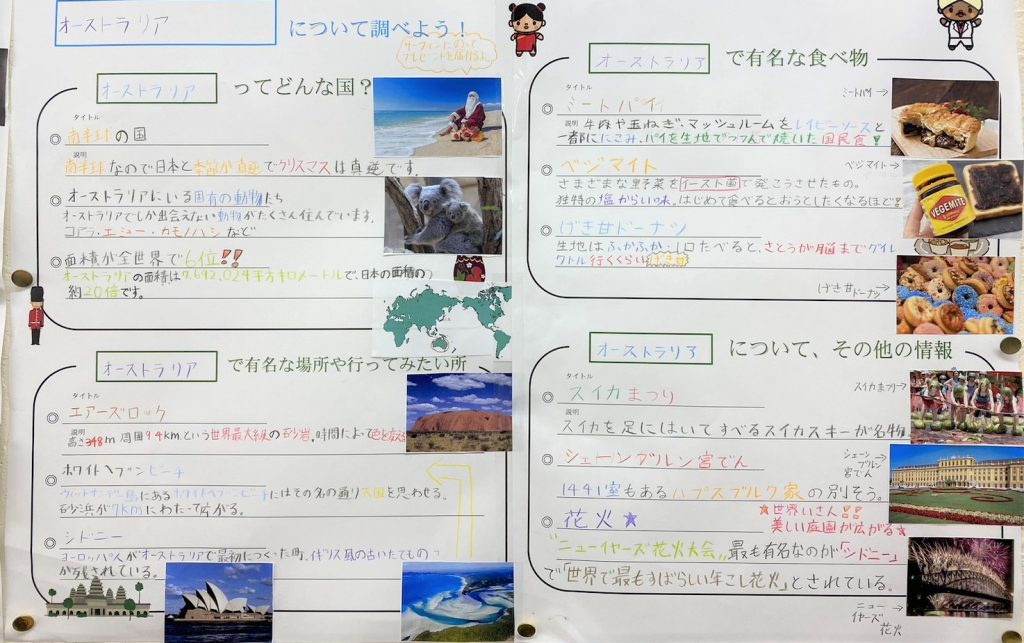 オーストラリア について調べよう！
サーフィンにのって
プレゼントを届けるよん
オーストラリア ってどんな国？
タイトル
◎ 南半球の国
説明
南半球なので日本と季節が真逆でクリスマスは真逆です。
◎ オーストラリアにいる固有の動物たち
オーストラリアでしか出会えない動物がたくさん住んでいます。
コアラ・エミュー・カモノハシなど
◎ 面積が全世界で6位!!
オーストラリアの面積は7.692,024平方キロメートルで、日本の面積の
約20倍です。
オーストラリア で有名な場所や行ってみたい所
タイトル
◎ エアーズロック
説明
高さ348m 周囲9.4kmという世界最大級の砂岩。時間によって色を変える
◎ ホワイトヘブンビーチ
ウィットサンデー島にあるホワイトヘブンビーチにはその名の通り天国を思わせる、
砂浜が7kmにわたって広がる。
◎ シドニー
ヨーロッパ人がオーストラリアで最初につくった町。イギリス風の古いたてもの
が残されている。
オーストラリア で有名な食べ物
タイトル
◎ ミートパイ
ミートパイ→
説明 牛肉や玉ねぎ・マッシュルームをグレイビーソースと
一緒ににこみ、パイを生地でつつんで焼いた国民食!
◎ ベジマイト
ベジマイト→
さまざまな野菜をイースト菌で発こうさせたもの。
独特の塩からい味。はじめて食べるとおうとしたくなるほど!
◎ げき甘ドーナツ
生地はふかふか・1口たべると、さとうが脳までダイレ
クトル行くくらいげき甘
げき甘ドーナツ→
VEGEMITE
オーストラリア について、その他の情報
タイトル
◎ スイカまつり
スイカまつり→
説明
スイカを足にはいてすべるスイカスキーが名物
◎ シェーンブルン宮でん
シェーン
ブルン
宮でん→
1441室もあるハプスブルク家の別そう。
★世界いさん!!
美しい庭園が広がる★
◎ 花火★
"ニューイヤーズ花火大会"最も有名なのが「シドニー」
で「世界で最もすばらしい年こし花火」とされている。
ニュー→
イヤーズ
花火